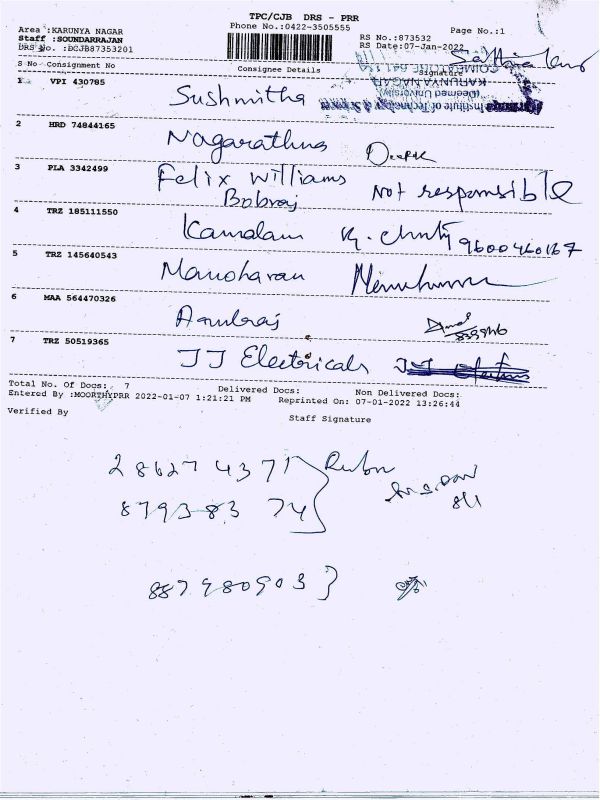 TPC/CJB DRS - PRR
Area :KARUNYA NAGAR
Phone No.:0422-3505555
Page No.:1
Staff :SOUNDARRAJAN
RS No.:873532
DRS No. :BCJB87353201
RS Date:07-Jan-2022
S No Consignment No Consignee Details Signature
COIMBATORE
KARUNYA NAGAR
(Deemed University)
Institute of Technology & Sciences
1 VPI 430785 Sushmitha
2 HRD 74844165 Nagarathna Deepak
3 PLA 3342499 Felix Williams Not responsible
Bobraj
4 TRZ 185111550 Kamalam
5 TRZ 145640543 Manoharan
6 MAA 564470326
7 TRZ 50519365 JJ Electricals
Total No. Of Docs: 7 Delivered Docs: Non Delivered Docs:
Entered By :MOORTHYPRR 2022-01-07 1:21:21 PM Reprinted On: 07-01-2022 13:26:44
Verified By Staff Signature
28627 4371 Ruban
879383 74
887980903